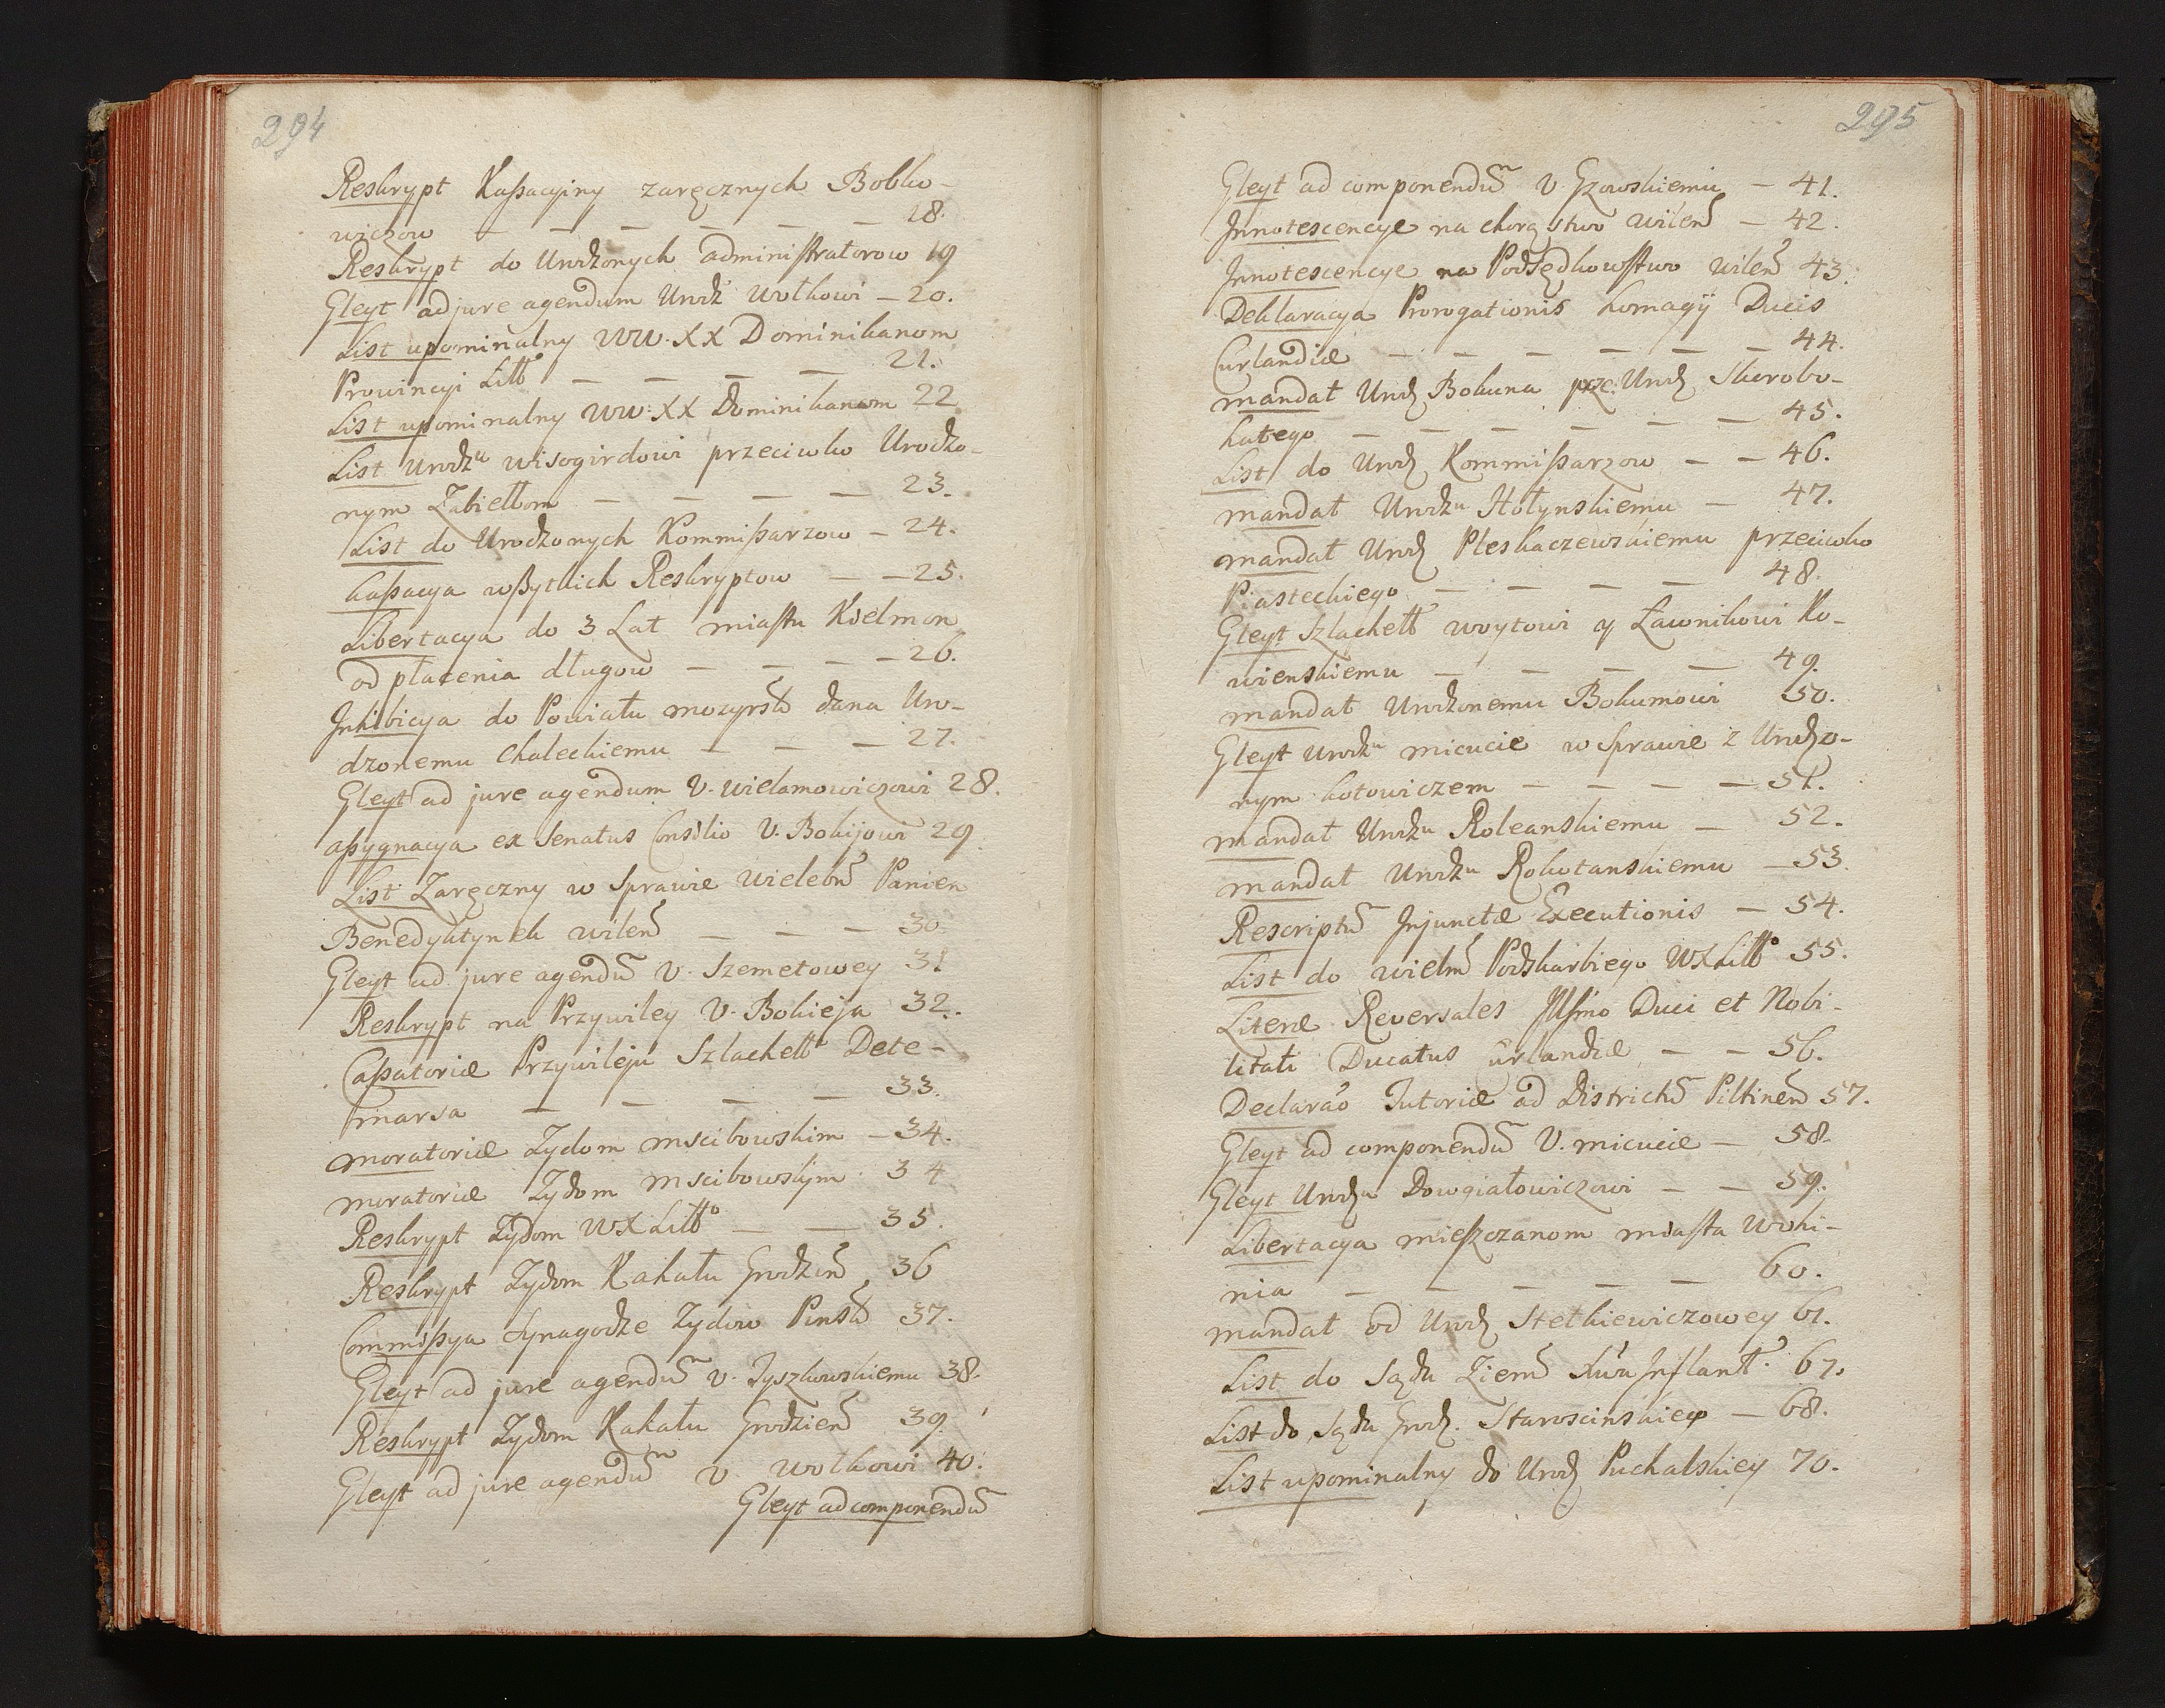 294
Reskrypt Kaßacyjny zaręcznych Bobko-
wiczow — — — — — — 18.
Reskrypt do Urodzonych administratorow 19
Gleyt ad jure agendum Urodz Wolkowi — 20.
List upominalny WW. XX Dominikanom
Prowincyi Litt — — — — 21.
List upominalny WW. XX Dominikanom 22
List Urodzu Wisogirdowi przeciwko Urodzo-
nym Zabiellom — — — — 23.
List do Urodzonych Kommißarzow — 24.
Kaßacya wßytkich Reskryptow — — 25.
Libertacya do 3 Lat miastu Kielmon
od płacenia długow — — — — 26.
Inhibicya do Powiatu mozyrsk dana Uro-
dzonemu Chaleckiemu — — — 27.
Gleyt ad jure agendum U. Wielamowiczowi 28.
aßygnacya ex Senatus Consilio U. Bokijowi 29.
List Zaręczny w Sprawie Wielebn Panien
Benedyktynek wilen — — — 30.
Gleyt ad jure agendu U. Szemetowey 31
Reskrypt na Przywiley U. Bokieja 32.
Caßatoriæ Przywileju Szlachett Dete-
marsa — — — — 33.
moratoriæ Zydom mscibowskim — 34.
moratoriæ Zydom mscibowskim 34
Reskrypt Zydom WXLitto — — 35.
Reskrypt Zydom Kahału Grodzen 36
Commißya Synagodze Zydow Pinsk 37.
Gleyt ad jure agendu U. Tyszkowskiemu 38.
Reskrypt Zydom Kahału Grodzien 39.
Gleyt ad jure agendu U. Wolkowi 40.
Gleyt ad componendu
295
Gleyt ad componendu U. Gzowskiemu — 41.
Innotescencye na chorąstwo wilen — 42.
Innotescencye na Podsędkowstwo wilen 43.
Deklaracya Prorogationis homagij Ducis
Curlandiæ — — — — — — 44.
mandat Urodz Bokuna prze. Urodz Skorobo-
hatego — — — — — — 45.
List do Urodz Kommißarzow — — 46.
mandat Urodzu Hołynskiemu — 47.
mandat Urodz Pleskaczewskiemu przeciwko
Piasteckiego — — — — 48.
Gleyt Szlachett woytowi y Ławnikowi Ko-
wienskiemu — — — — 49.
mandat Urodzonemu Bokumowi 50.
Gleyt Urodzu micucie w Sprawie z Urodzo-
nym kotowiczem — — — — 51.
mandat Urodzu Roleanskiemu — 52.
mandat Urodzu Rokotanskiemu — 53.
Rescriptu Injunctæ Executionis — 54.
List do wielm Podskarbiego WXLitto 55.
Literæ Reversales Illsmo Duci et Nobi-
litati Ducatus Curlandiæ — — 56.
Declarao Tutoriæ ad Districtu Piltinen 57.
Gleyt ad componendu U. micucie — 58.
Gleyt Urodzu Dowgiałowiczowi — — 59.
Libertacya mießzczanom miasta Wohi-
nia — — — — — 60.
mandat od Urodz Stetkiewiczowey 61.
List do Sądu Ziem Xtwa Inflant. 67.
List do Sądu Grodz. Staroscinskiego — 68.
List upominalny do Urodz Puchalskiey 70.